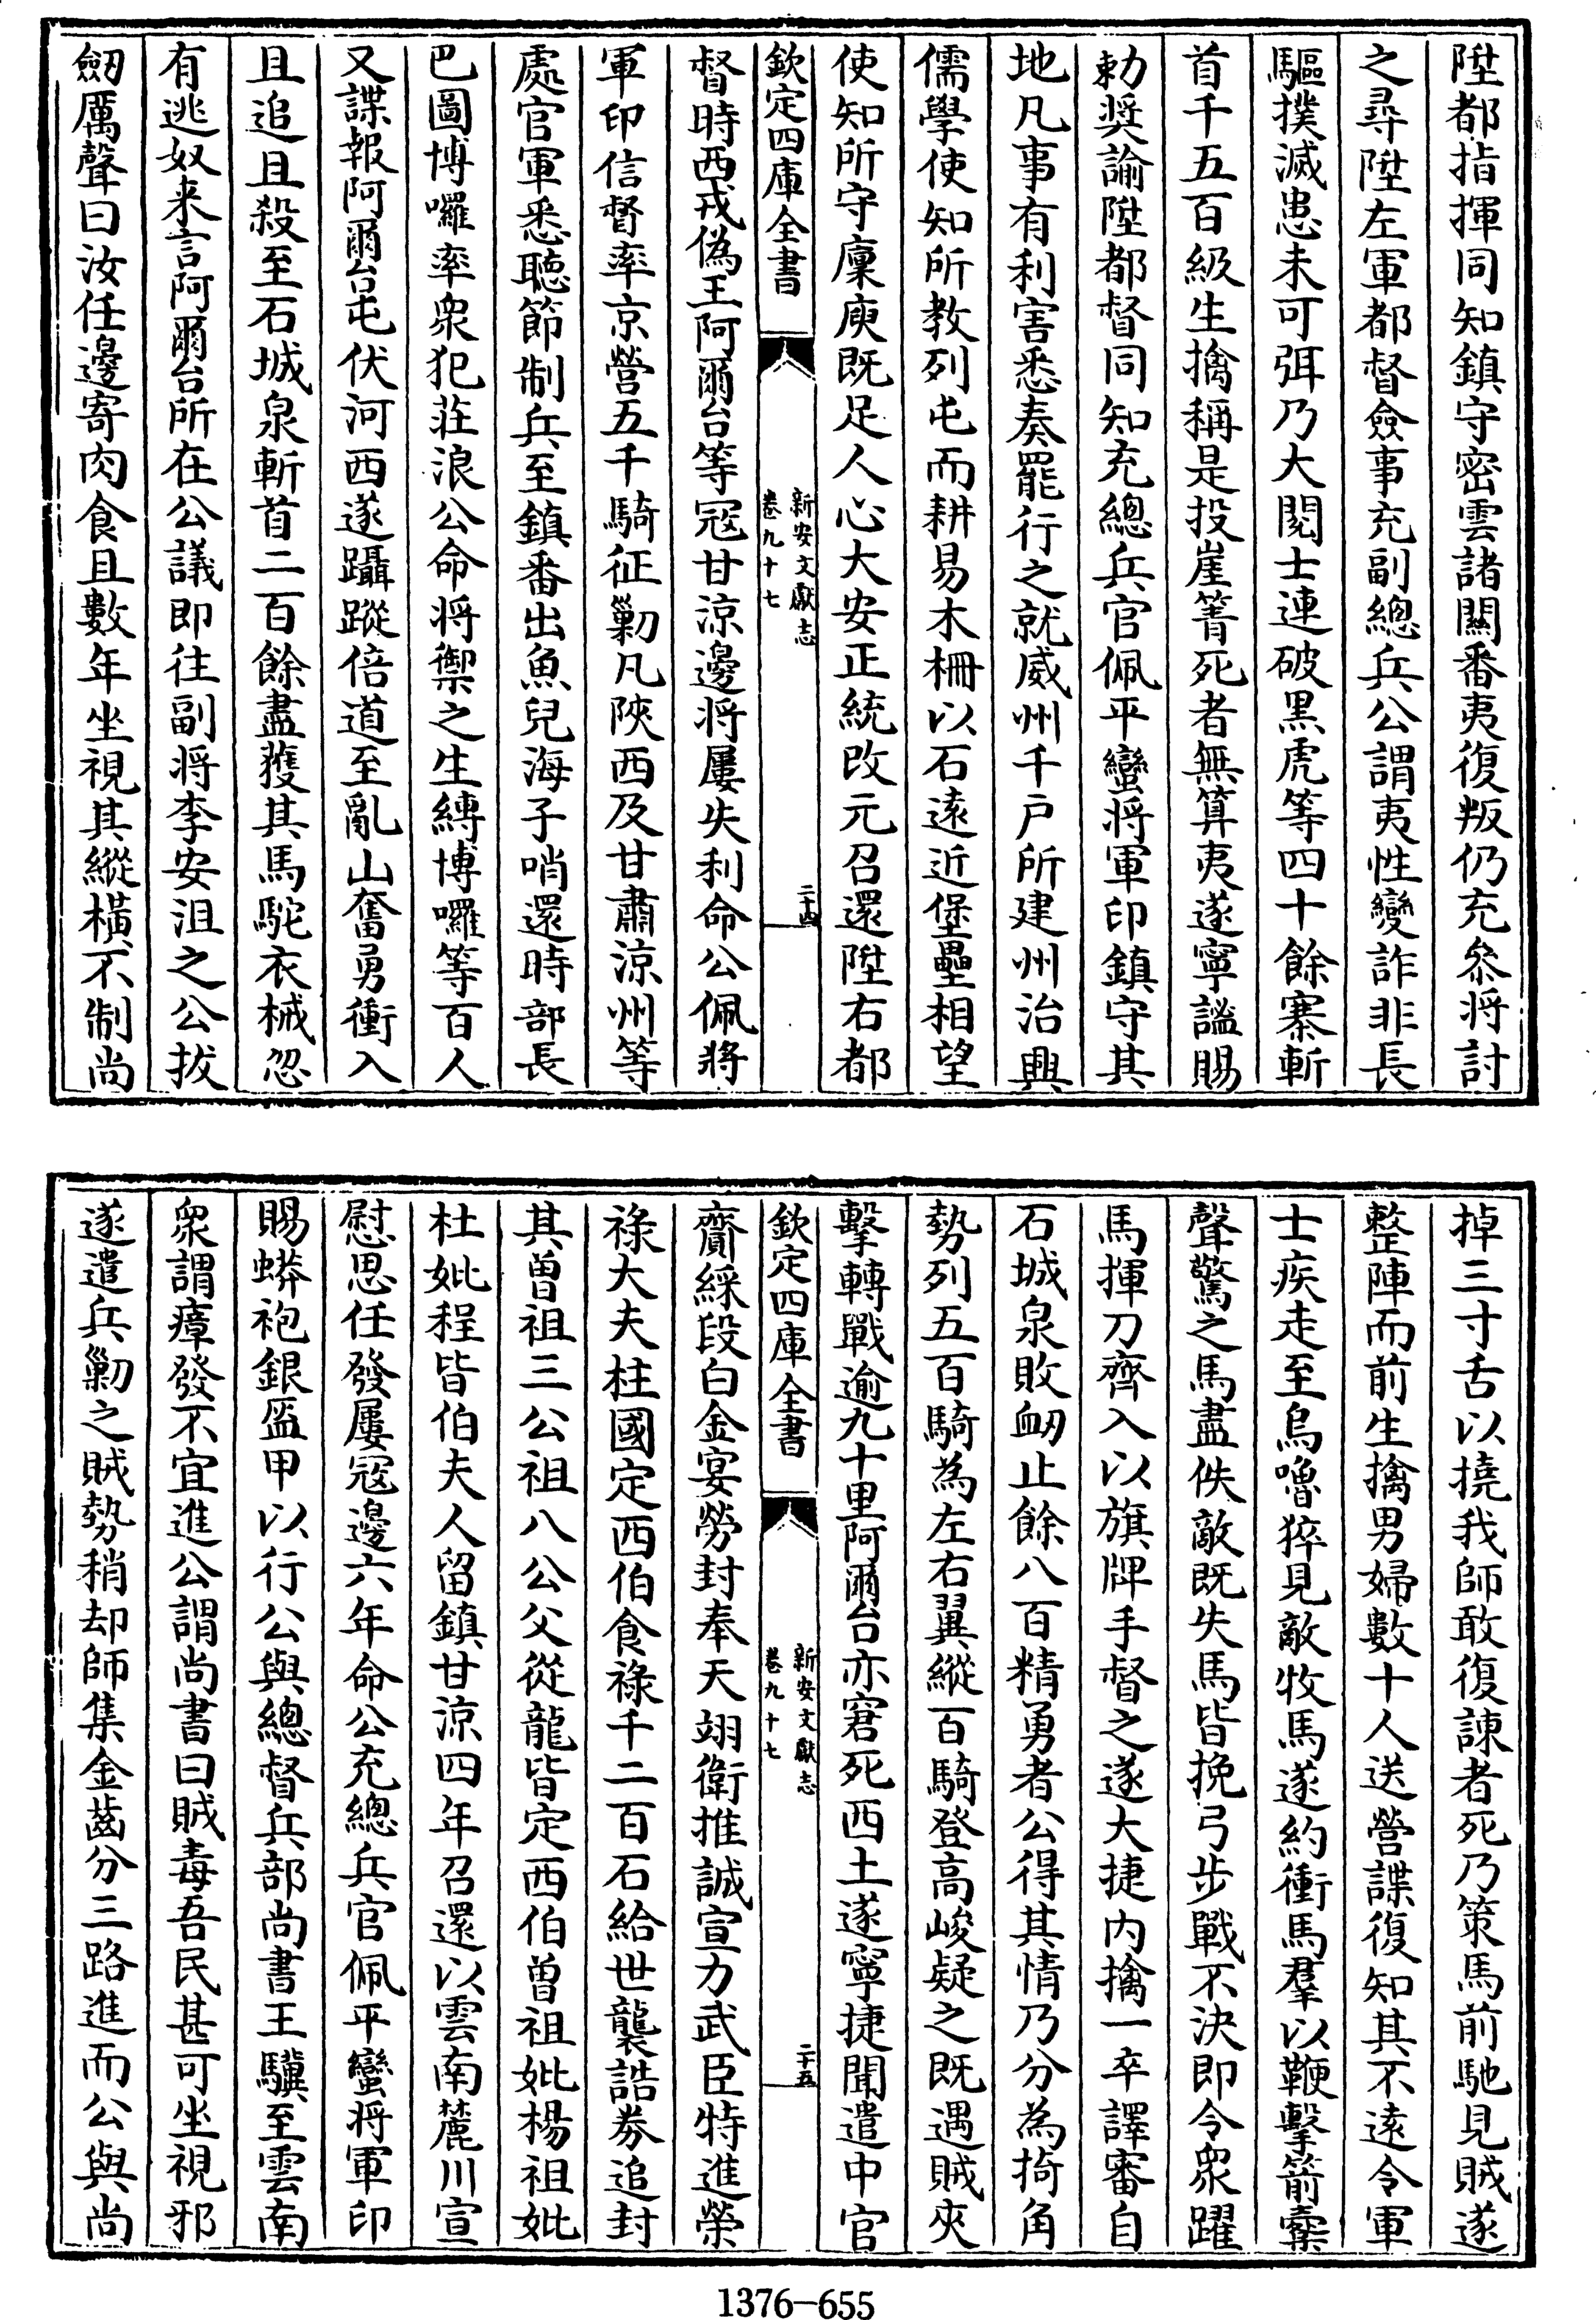 陞都指揮同知鎮守密雲諸關番夷復叛仍充叅将討
之尋陞左軍都督僉事充副總兵公謂夷性變詐非長
驅撲滅患未可弭乃大閱士連破黒虎等四十餘寨斬
首千五百級生擒稱是投崖箐死者無算夷遂寧謐賜
勅奨諭陞都督同知充總兵官佩平蠻将軍印鎮守其
地凡事有利害悉奏罷行之就威州千戸所建州治興
儒學使知所教列屯而耕易木柵以石遠近堡壘相望
使知所守廩庾既足人心大安正統改元召還陞右都
欽定四庫全書
新安文獻志
卷九十七
二十四
督時西戎偽王阿爾台等冦甘凉邊将屢失利命公佩將
軍印信督率京營五千騎征剿凡陝西及甘肅凉州等
處官軍悉聽節制兵至鎮番出魚兒海子哨還時部長
巴圖博囉率衆犯莊浪公命将禦之生縛博囉等百人
又諜報阿爾台屯伏河西遂躡蹤倍道至亂山奮勇衝入
且追且殺至石城泉斬首二百餘盡獲其馬駝衣械忽
有逃奴来言阿爾台所在公議即往副将李安沮之公拔
劒厲聲曰汝任邊寄肉食且數年坐視其縱橫不制尚
掉三寸舌以撓我師敢復諫者死乃策馬前馳見賊遂
整陣而前生擒男婦數十人送營諜復知其不遠令軍
士疾走至烏嚕猝見敵牧馬遂約衝馬羣以鞭擊箭櫜
聲驚之馬盡佚敵既失馬皆挽弓步戰不決即令衆躍
馬揮刀齊入以旗牌手督之遂大捷内擒一卒譯審自
石城泉敗衂止餘八百精勇者公得其情乃分為掎角
勢列五百騎為左右翼縱百騎登高峻疑之既遇賊夾
擊轉戰逾九十里阿爾台亦窘死西土遂寧捷聞遣中官
欽定四庫全書
新安文獻志
卷九十七
二十五
齎綵段白金宴勞封奉天翊衛推誠宣力武臣特進榮
禄大夫柱國定西伯食祿千二百石給世襲誥券追封
其曽祖三公祖八公父從龍皆定西伯曽祖妣楊祖妣
杜妣程皆伯夫人留鎮甘凉四年召還以雲南麓川宣
慰思任發屢冦邊六年命公充總兵官佩平蠻将軍印
賜蟒袍銀盔甲以行公與總督兵部尚書王驥至雲南
衆謂瘴發不宜進公謂尚書曰賊毒吾民甚可坐視邪
遂遣兵剿之賊勢稍却師集金齒分三路進而公與尚
1376-655